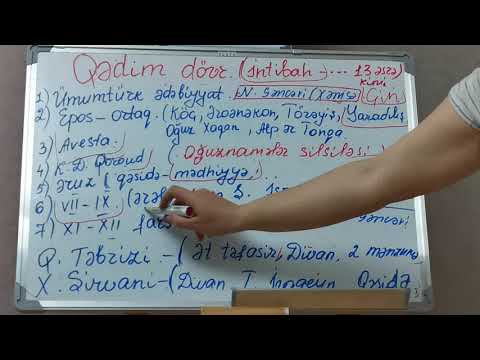 Qədim dövr. (İntibah - ... 13 əsrə kimi
1) Ümumtürk ədəbiyyat. N. Gəncəvi (Xəmsə) Çin
2) Epos - ortaq. (Köç, Ərgənəkon, Törəyiş, Yaradılış
Oğuz Xaqan, Alp ər Tonqa.
3) Avesta.
4) K. D. Qorqud (Oğuznamələr silsiləsi)
5) əruz ( qəsidə - mədhiyyə)..
6) VII - IX. (ərəb
7) XI - XII fars Gəncəvi
Q. Təbrizi - ( ət təfasir, Divan, 2 mənzumə
X. Şirvani - (Divan T. Qəsidə